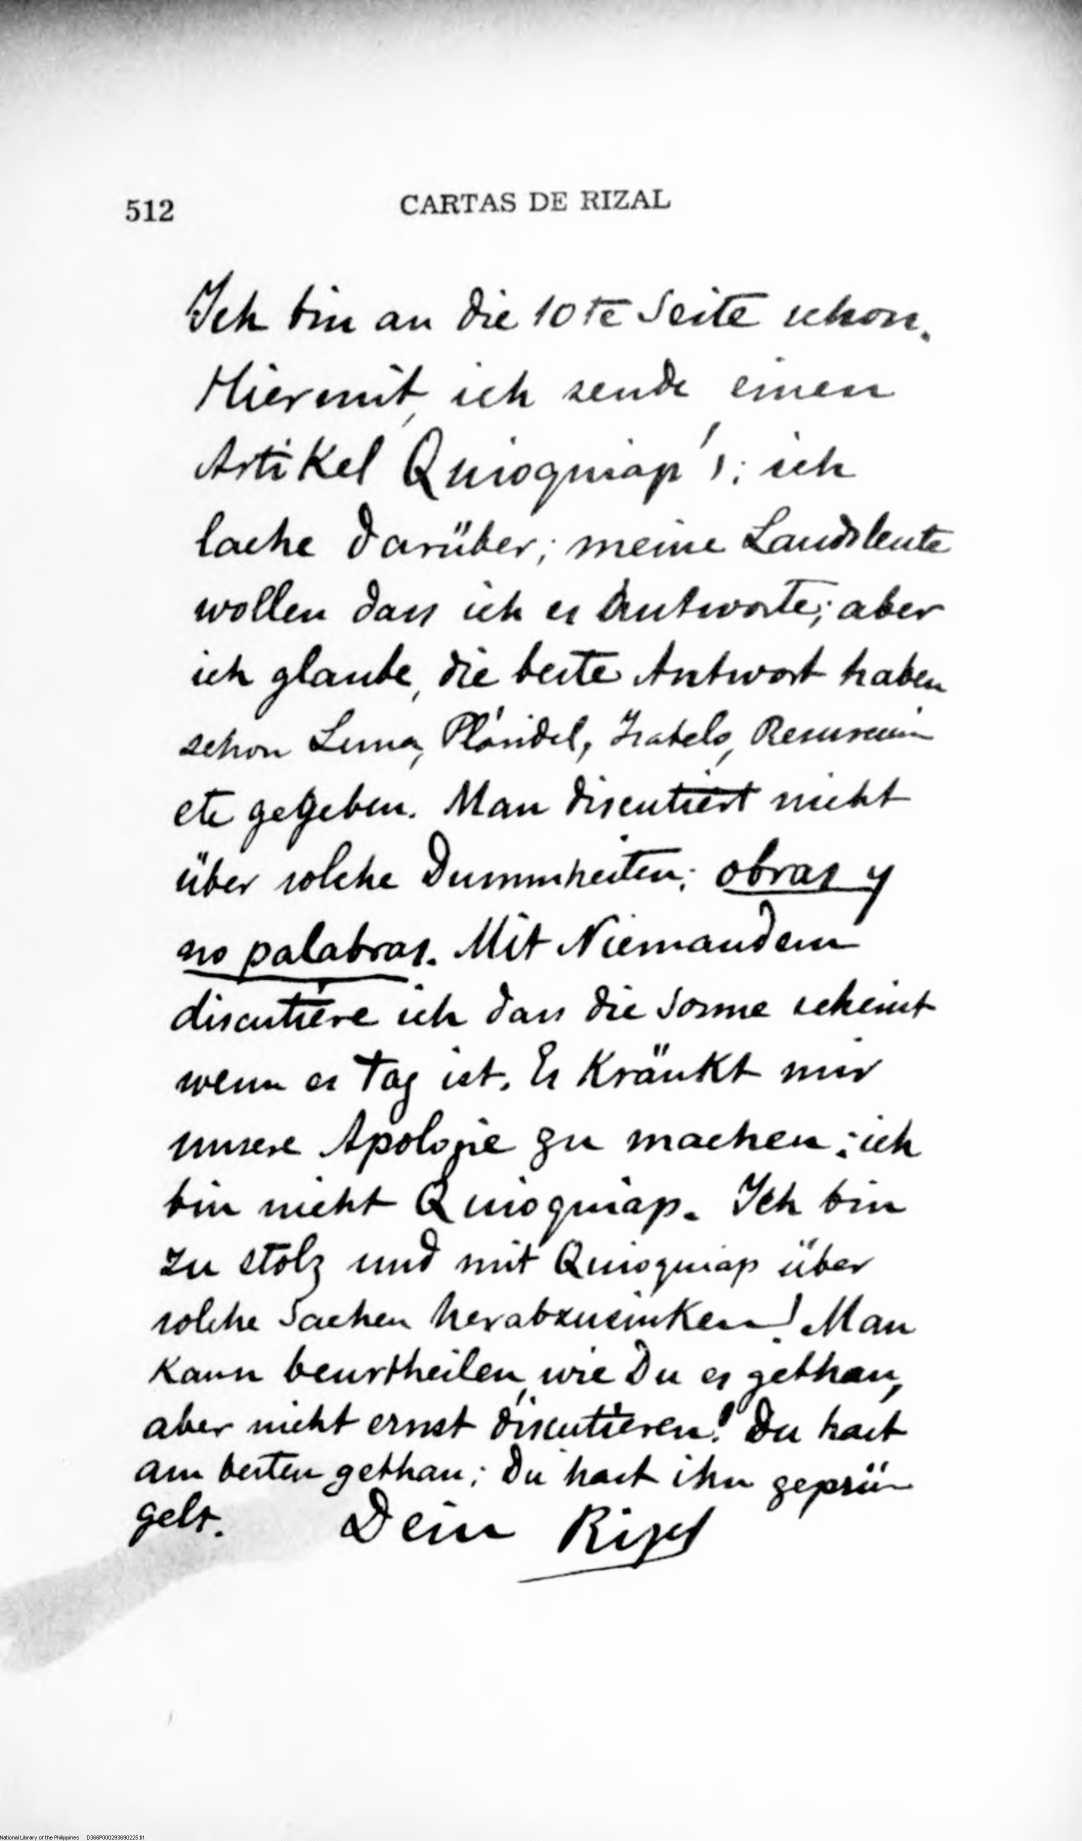 512 CARTAS DE RIZAL
Ich bin an die 10te Seite schon.
Hiermit, ich sende einen
Artikel Quioquiap's; ich
lache darüber; meine Landsleute
wollen dass ich es Antworte; aber
ich glaube, die beste Antwort haben
schon Luna, Pláridel,
etc gegeben. Man discutiert nicht
über solche Dummheiten; obras y
no palabras. Mit Niemandem
discutiere ich dass die Sonne scheint
wenn es Tag ist. Es Kränkt mir
unsere Apologie zu machen; ich
bin nicht Quioquiap. Ich bin
zu stolz und mit Quioquiap über
solche Sachen herabzusinken! Man
Kann beurtheilen, wie Du es gethan,
aber nicht ernst discutieren! Du hast
am besten gethan; Du hast ihn geprü-
gelt. Dein Rizal
National Library of the Philippines